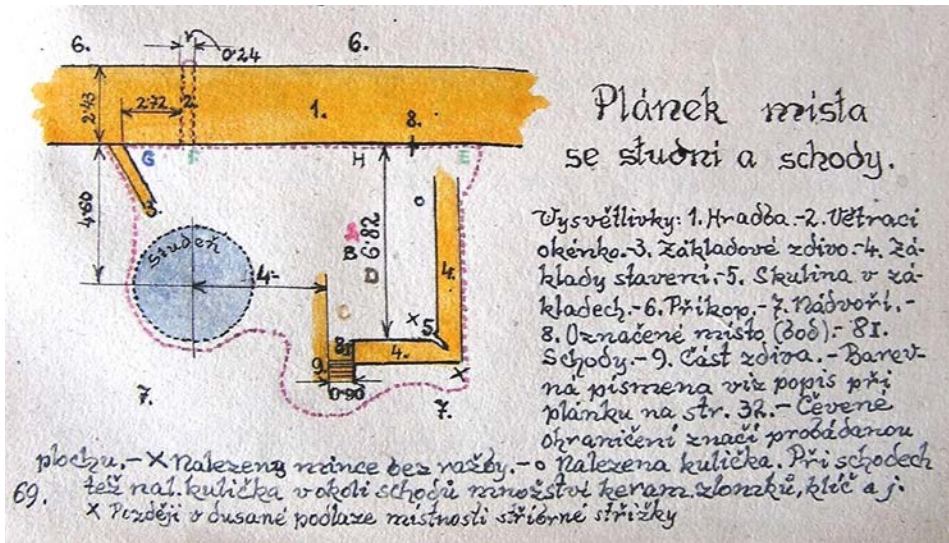 6.
0·24
6.
2·43
2·72
2.
1.
8.
G
F
H
E
3.
4·60
studeň
4·-
B
6·82
D
C
o
4.
×
5.
81
4.
9.
0·90
×
7.
7.
Plánek místa
se studní a schody.
Vysvětlivky: 1. Hradba.-2. Větrací
okénko.-3. Základové zdivo.-4. Zá-
klady stavení.-5. Skulina v zá-
kladech.-6. Příkop.-7. Nádvoří.-
8. Označené místo (bod).- 81.
Schody.-9. Část zdiva.- Barev-
ná písmena viz popis při
plánku na str. 32.- Čevené
ohraničení značí probádanou
plochu.- × Nalezeny mince bez ražby.- o Nalezena kulička. Při schodech
69. též nal. kulička v okolí schodů množství keram. zlomků, klíč a j.
× Později v dusané podlaze místnosti stříbrné střížky